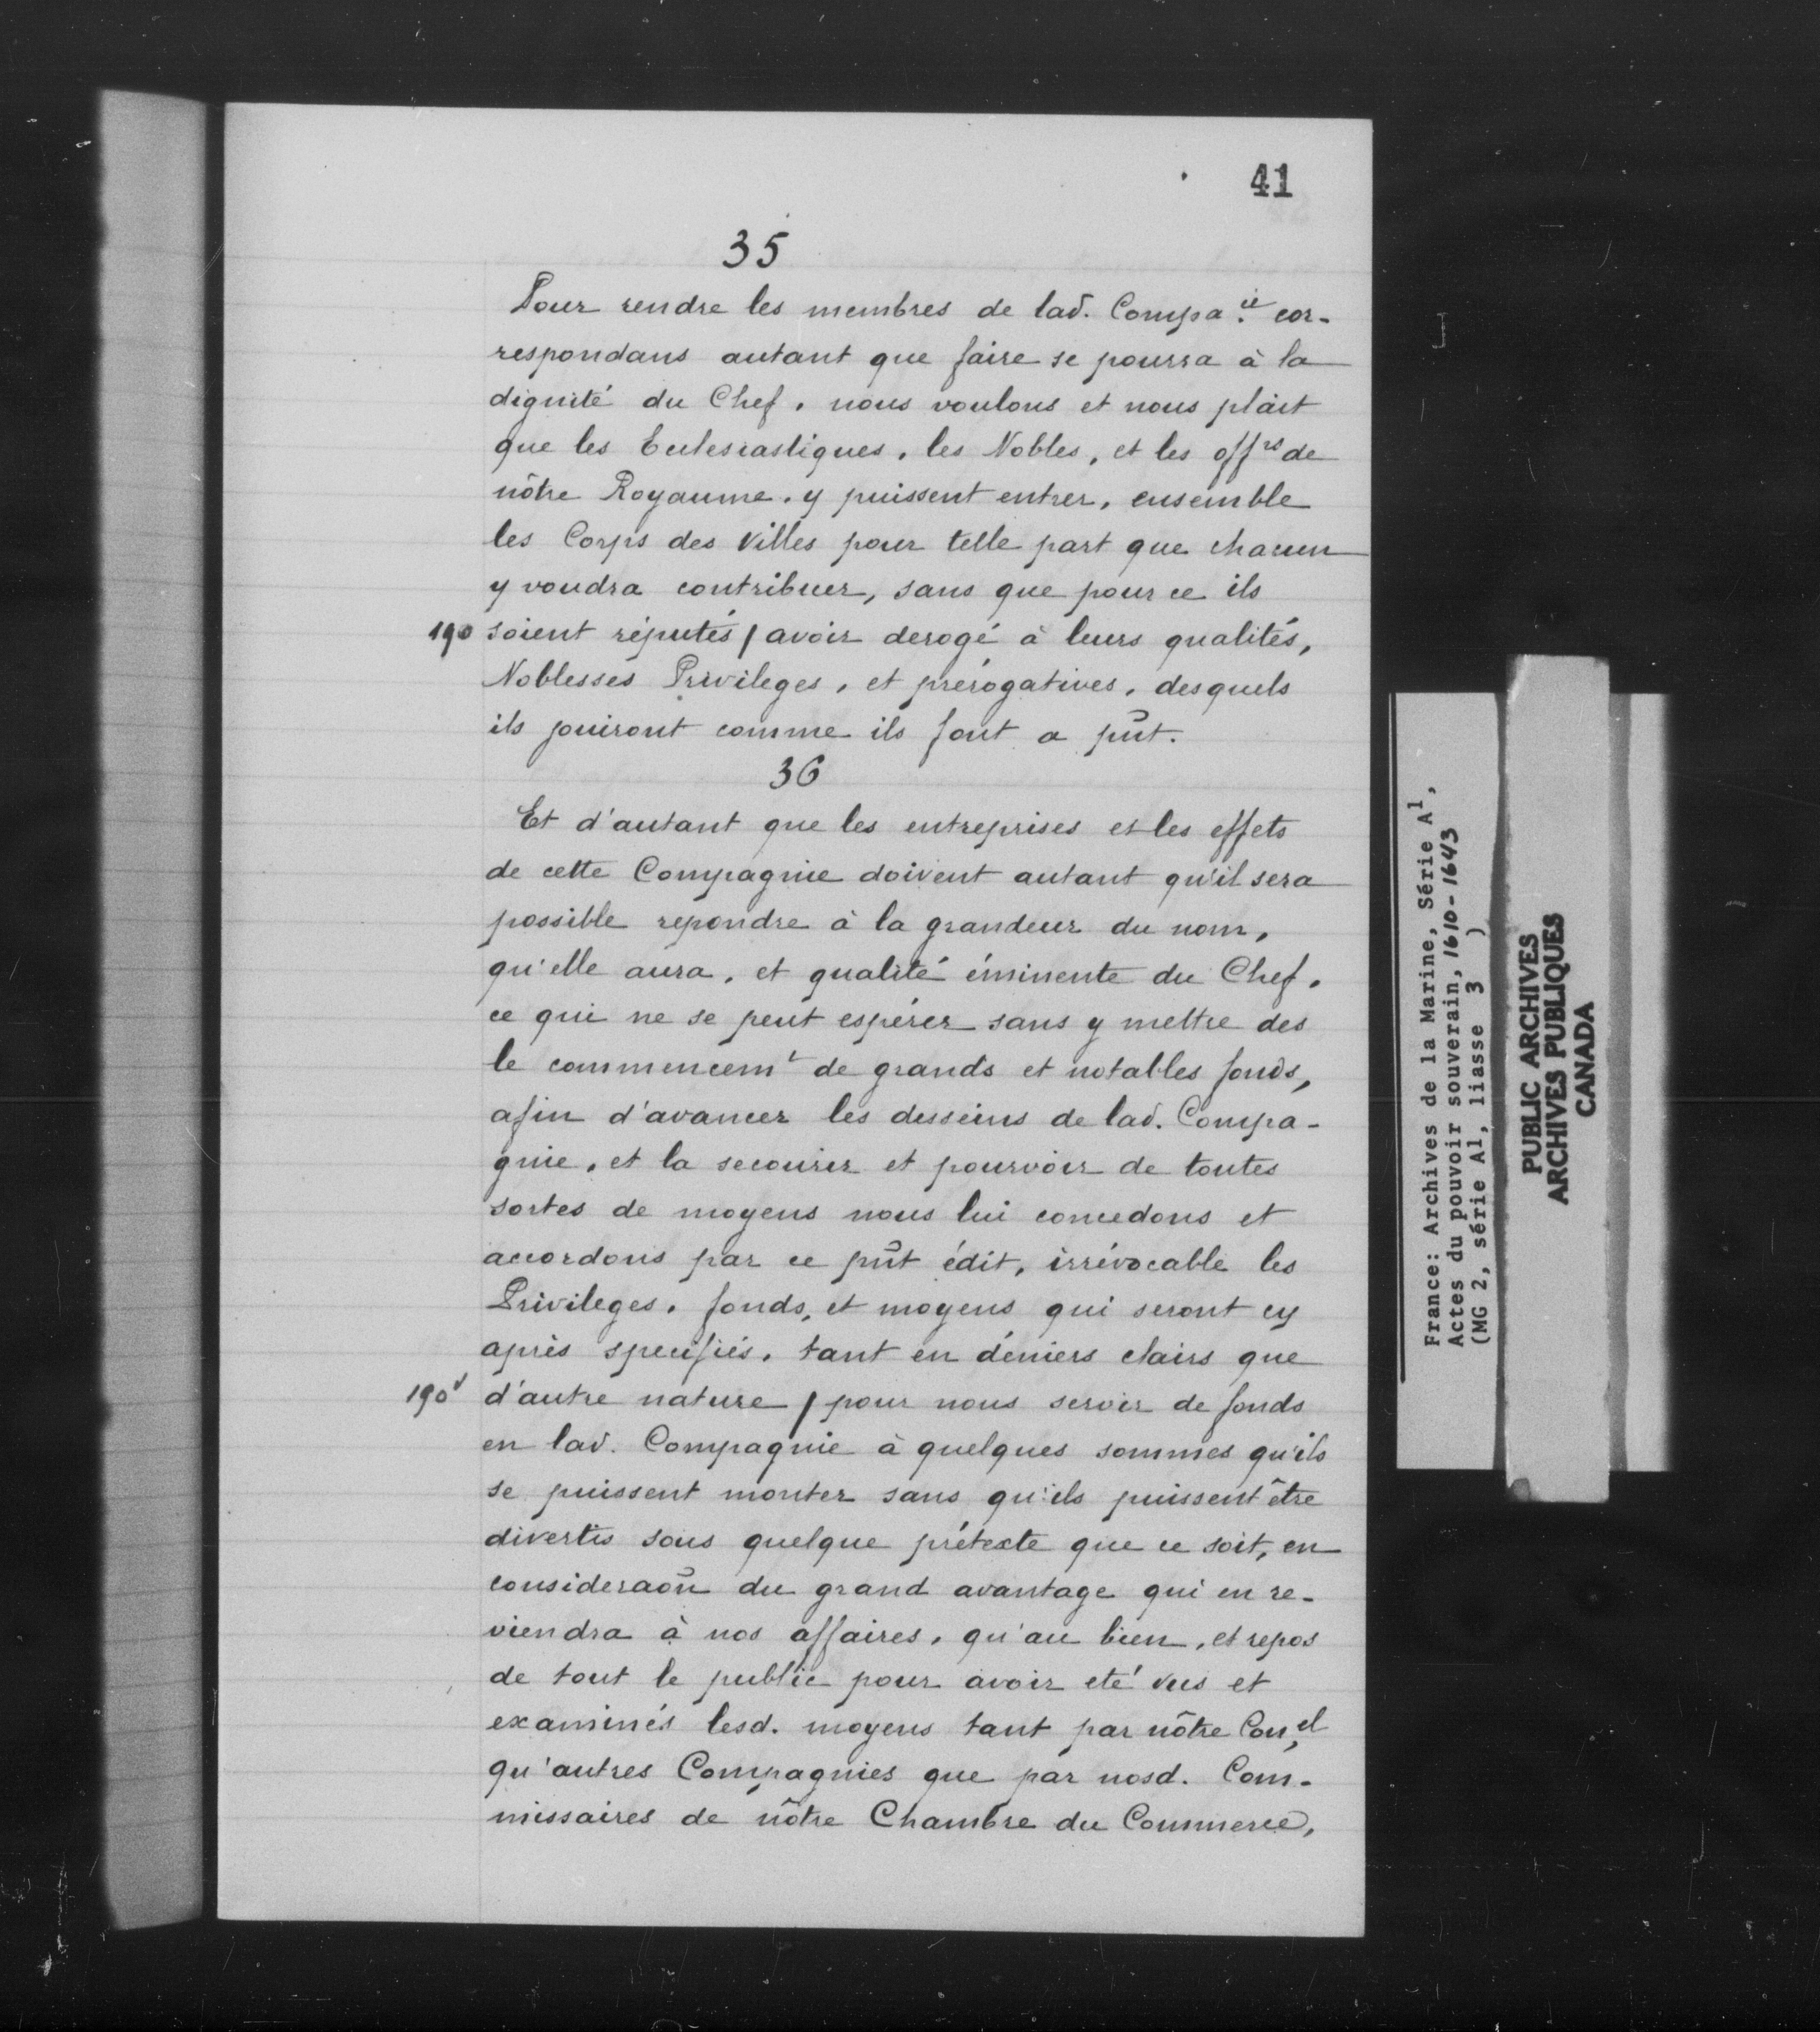 41
35
Pour rendre les membres de lad. Compa.ie cor-
respondans autant que faire se pourra à la
dignité du Chef, nous voulons et nous plait
que les Eclesiastiques, les Nobles, et les offrs de
nôtre Royaume, y puissent entrer, ensemble
les Corps des Villes pour telle part que chacun
y voudra contribuer, sans que pour ce ils
190 soient réputés / avoir derogé à leurs qualités,
Noblesses Privileges, et prérogatives, desquels
ils jouiront comme ils font a pñt.
36
Et d'autant que les entreprises et les effets
de cette Compagnie doivent autant qu'il sera
possible repondre à la grandeur du nom,
qu'elle aura, et qualité éminente du Chef,
ce qui ne se peut espérer sans y mettre des
le commencemt de grands et notables fonds,
afin d'avancer les desseins de lad. Compa-
gnie, et la secourir et pourvoir de toutes
sortes de moyens nous lui concedons et
accordons par ce pñt édit, irrévocable les
Privileges, fonds, et moyens qui seront cy
après specifiés, tant en déniers clairs que
190v d'autre nature / pour nous servir de fonds
en lad. Compagnie à quelques sommes qu'ils
se puissent monter sans qu'ils puissent être
divertis sous quelque prétexte que ce soit, en
consideraõn du grand avantage qui en re-
viendra à nos affaires, qu'au bien, et repos
de tout le public pour avoir eté vus et
examinés lesd. moyens tant par nôtre Conel
qu'autres Compagnies que par nosd. Com-
missaires de nôtre Chambre du Commerce,
France: Archives de la Marine, Série A1,
Actes du pouvoir souverain, 1610-1643
(MG 2, série A1, liasse 3 )
PUBLIC ARCHIVES
ARCHIVES PUBLIQUES
CANADA